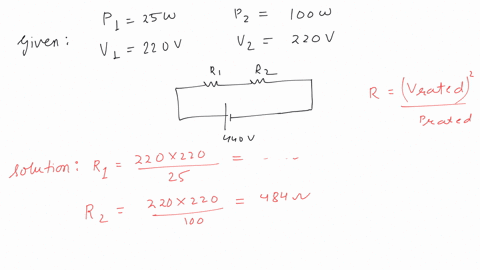 P₁ = 25W P₂ = 100W
Given: V₁ = 220V V₂ = 220V
R₁ R₂
440V
R = (Vrated)² / Prated
Solution: R₁ = 220×220 / 25 = - - - -
R₂ = 220×220 / 100 = 484Ω